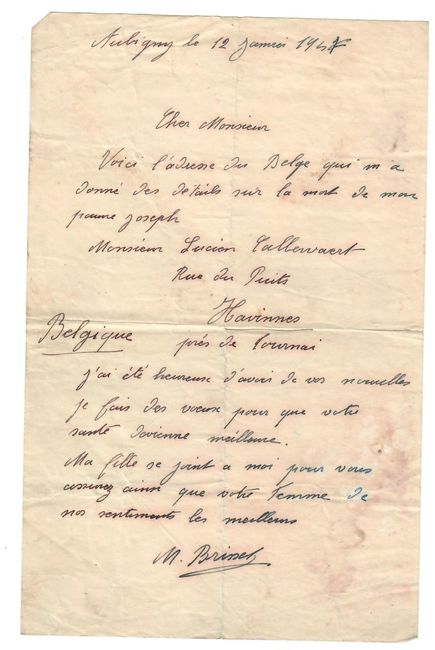 Aubigny le 12 Janvier 194
Cher Monsieur
Voici l'adresse du Belge qui m'a
donné des détails sur la mort de mon
pauvre Joseph
Monsieur Lucien Callewaert
Rue du Puits
Havinnes
Belgique près de Tournai
j'ai été heureuse d'avoir de vos nouvelles
je fais des voeux pour que votre
santé devienne meilleure.
Ma fille se joint a moi pour vous
ainsi que votre femme de
nos sentiments les meilleurs
M. Brisset